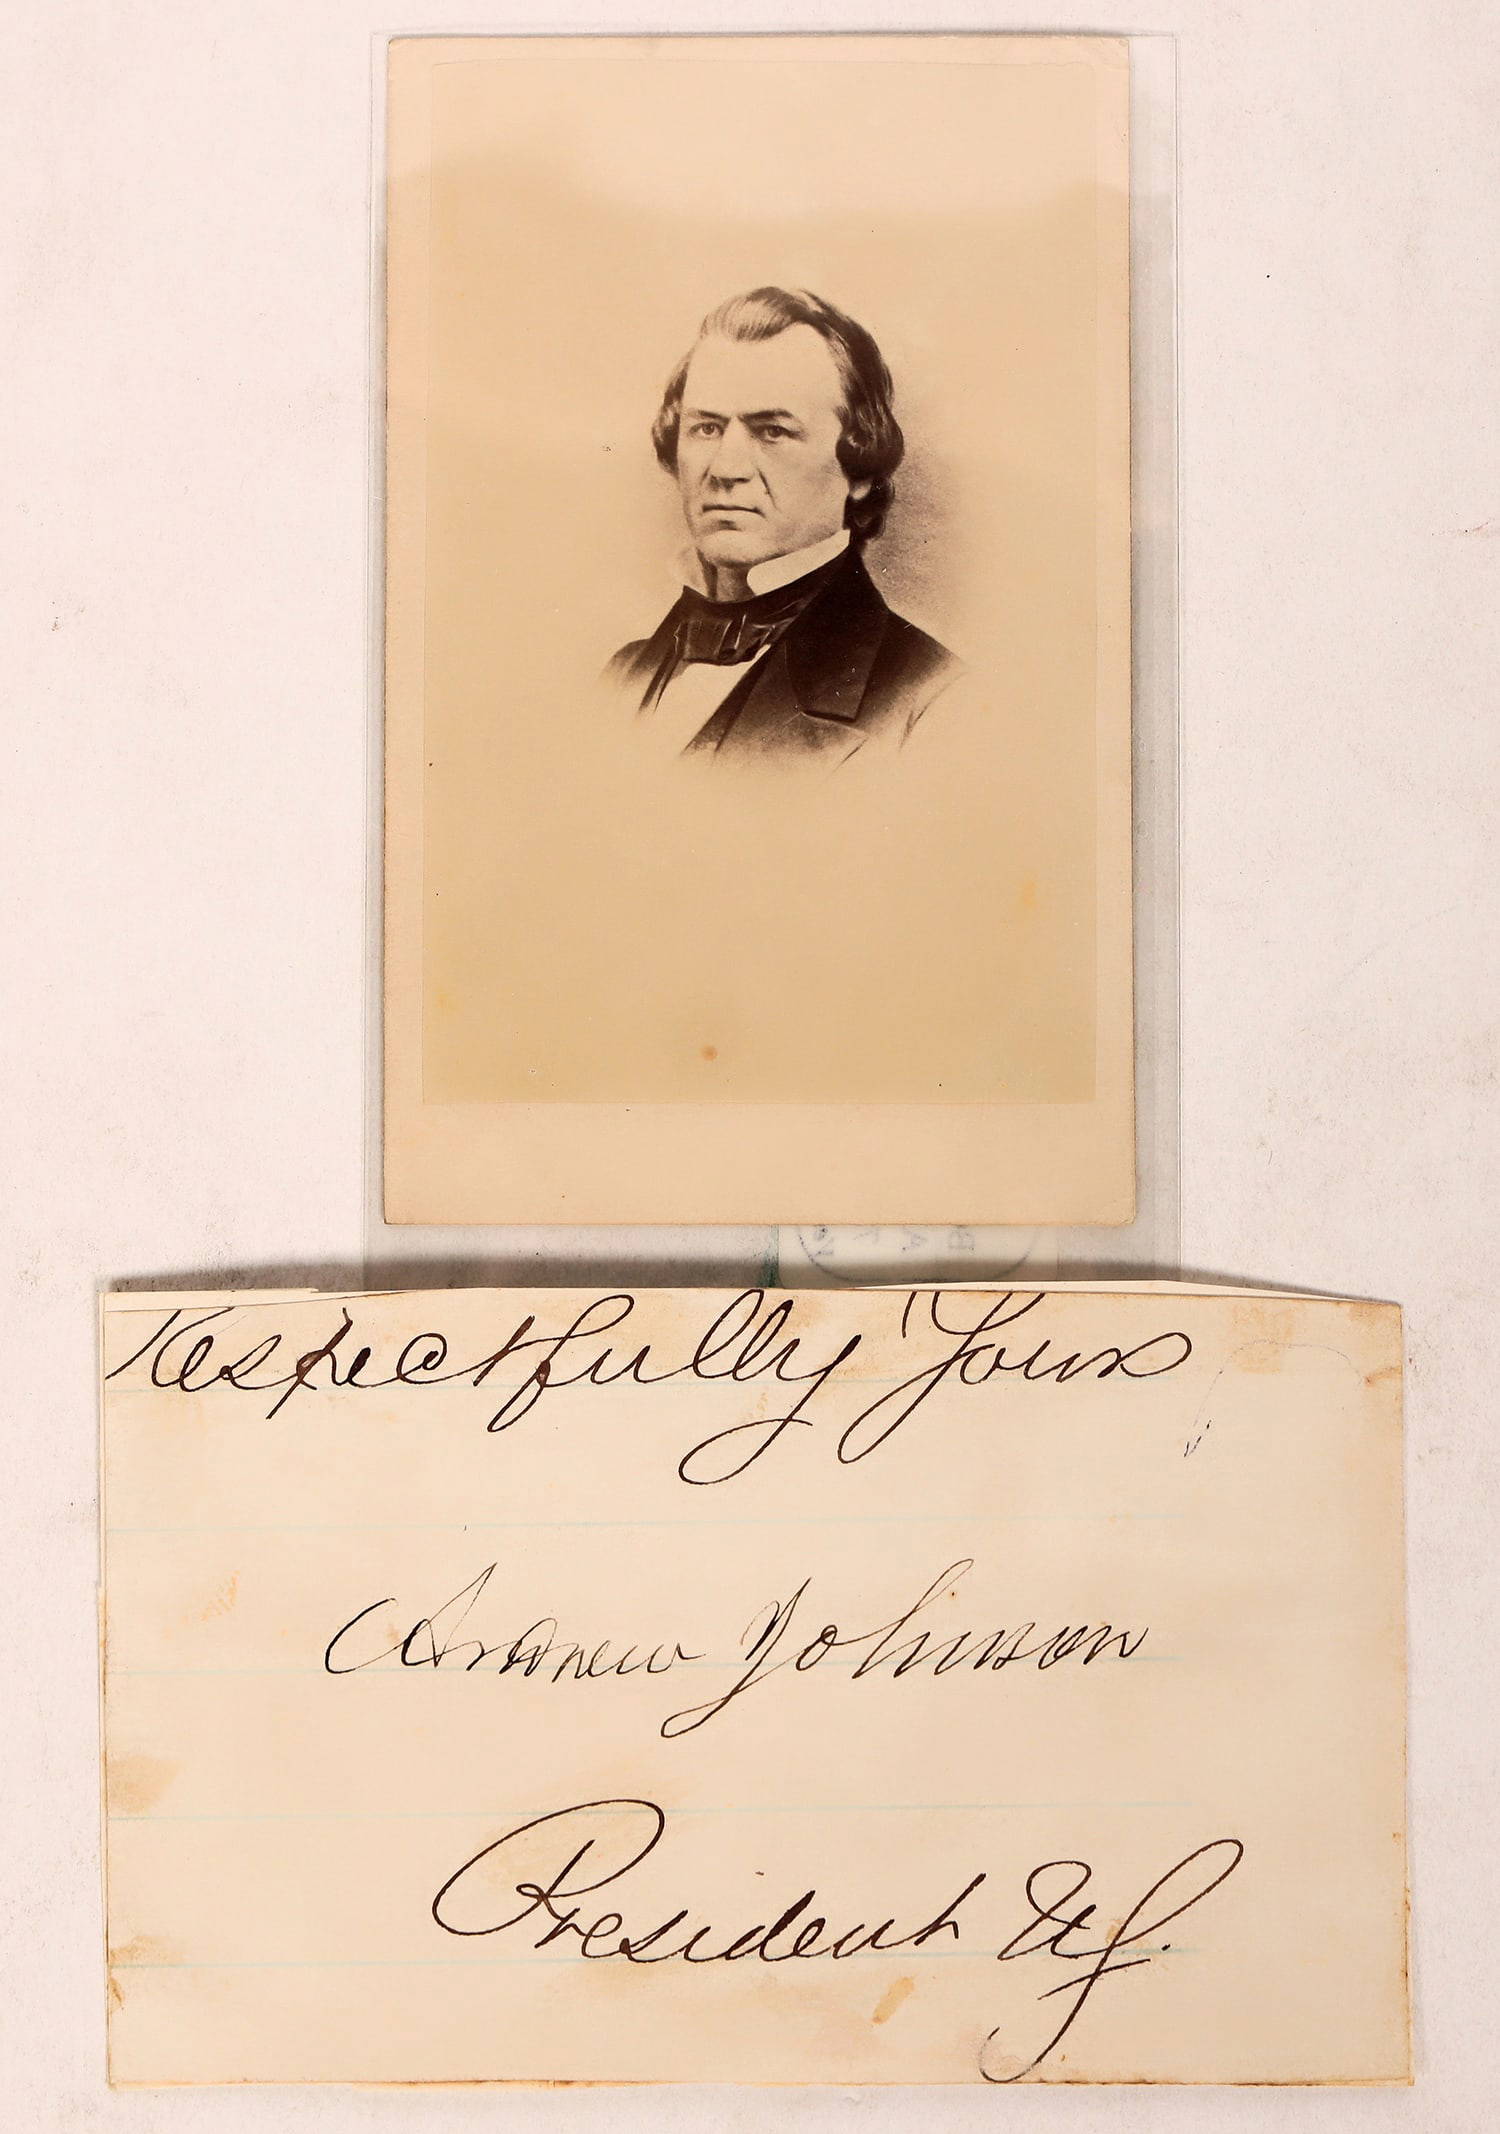 Respectfully Yours
Andrew Johnson
President US.